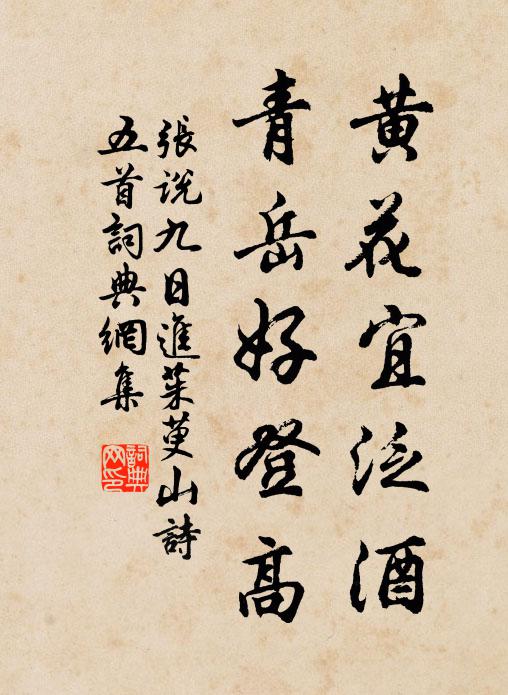 黄花宜泛酒
青岳好登高
張說九日進茱萸山詩
五首詞典網集
詞典網印